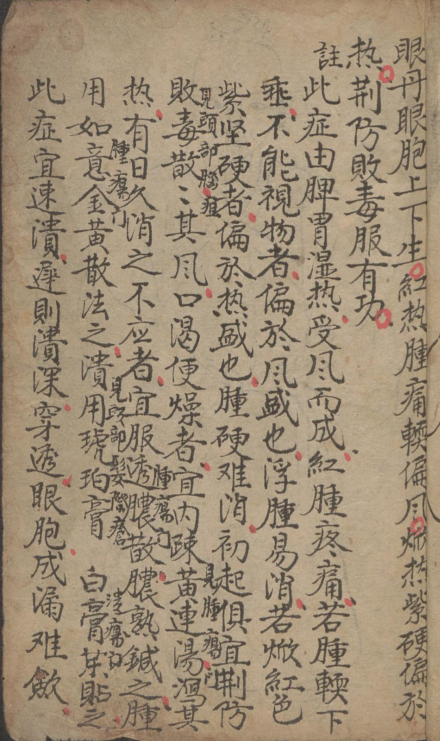 眼丹眼胞上下生红热腫痛輭偏风焮热紫硬偏於
热荆防敗毒服有功
註此症由脾胃湿热受风而成红腫疼痛若腫輭下
垂不能視物者偏於风盛也浮腫易消若焮红色
紫坚硬者偏於热盛也腫硬难消初起俱宜荆防
見頭部腦疽
敗毒散〻其风口渴便燥者宜内疎黄連湯泻其
見腫瘍門
热有日久消之不应者宜服透膿散膿熟鍼之腫
腫瘍門
腫瘍門
用如意金黄散法之潰用琥珀膏 白膏藥貼之
見頭部髮際瘡
潰瘍門
此症宜速潰遲則潰深穿透眼胞成漏难歛